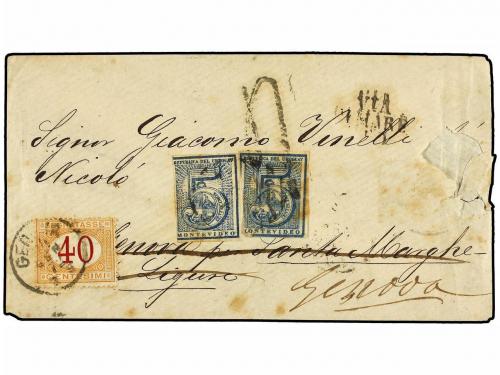 VIA
DI MARE
Signor Giacomo Vinelli
Nicoló
REPUBLICA DEL URUGUAY
5
MONTEVIDEO
REPUBLICA DEL URUGUAY
5
MONTEVIDEO
SEGNATASSE
40
CENTESIMI
GENOVA
Genova p Santa Marghe-
Ligure
Genova